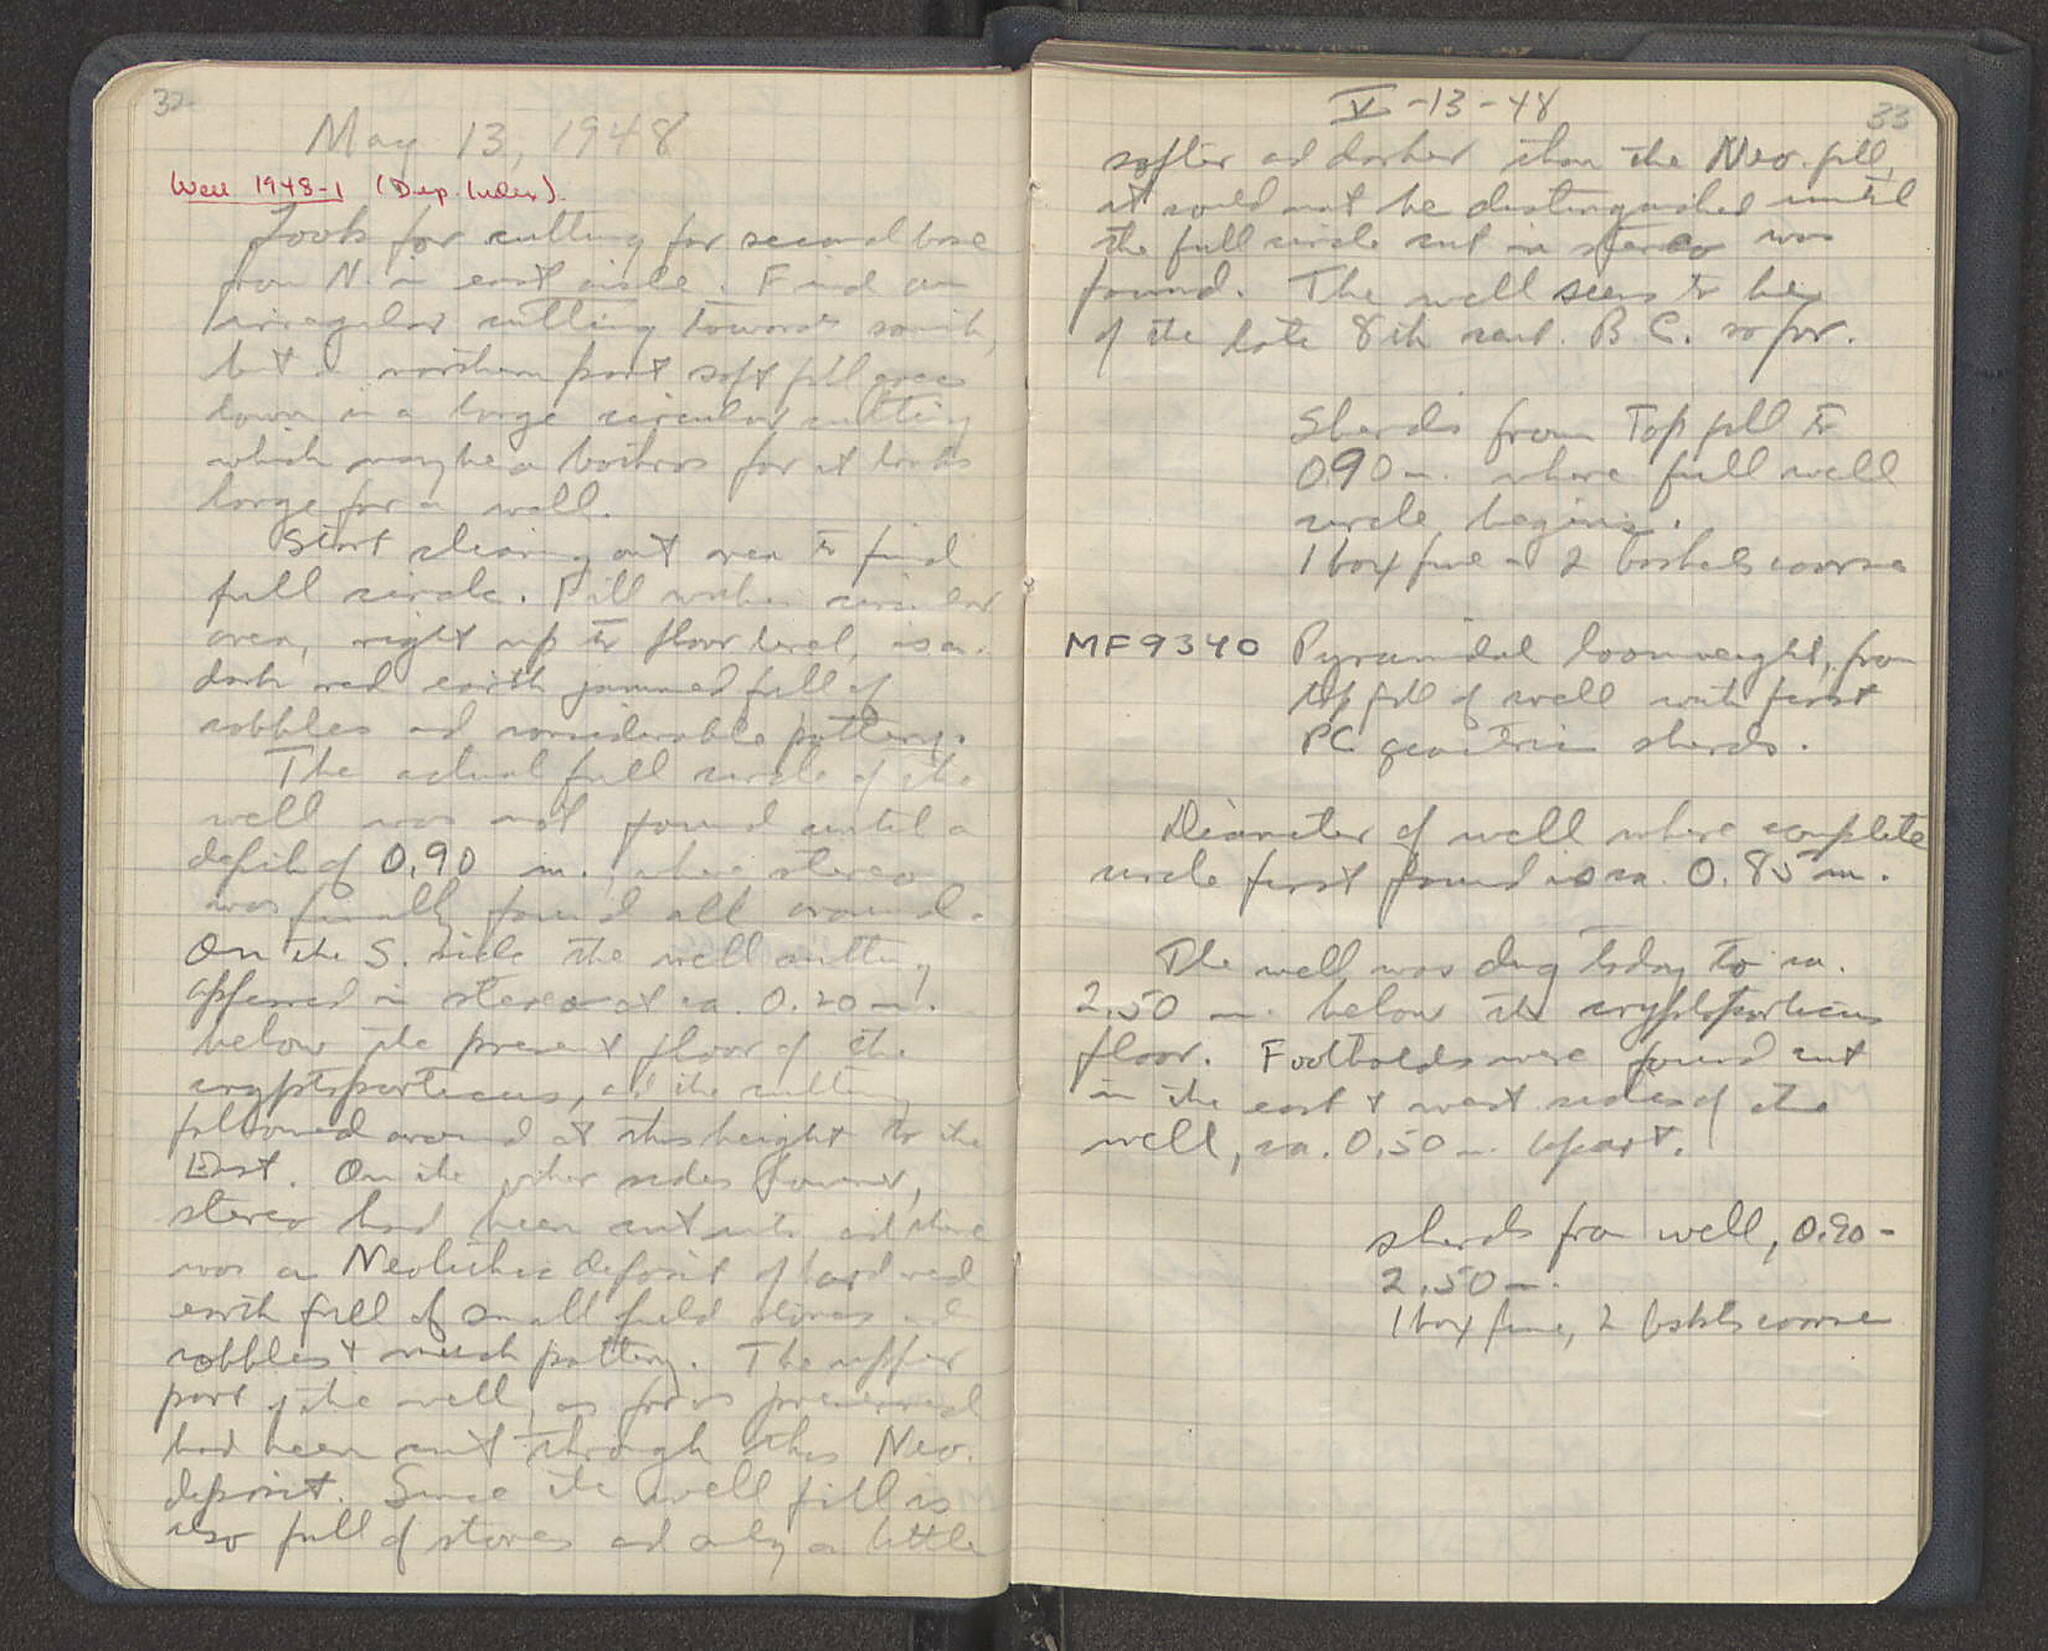 32
May 13, 1948
Well 1948-1 (Dep. Index).
Look for cutting for second base
from N. in east aisle. Find an
irregular cutting towards south,
but in northern part soft fill goes
down in a large circular cutting
which may be a bothros for it looks
large for a well.
Start clearing out area to find
full circle. Fill within circular
area, right up to floor level, is a
dark red earth jammed full of
cobbles and considerable pottery.
The actual full circle of the
well was not found until a
depth of 0.90 m., where stereo
was finally found all around.
On the S. side the well cutting
appeared in stereo at ca. 0.20 m.
below the present floor of the
cryptoporticus, and the cutting
followed around at this height to the
East. On the other sides however,
stereo had been cut into and there
was a Neolithic deposit of hard red
earth full of small field stones and
cobbles + much pottery. The upper
part of the well, as far as preserved
had been cut through this Neo.
deposit. Since the well fill is
also full of stones and only a little
V-13-48
33
softer and darker than the Neo. fill,
it could not be distinguished until
the full circle cut in stereo was
found. The well seems to be
of the late 8th cent. B.C. so far.
Sherds from Top fill to
0.90 m. where full well
circle begins.
1 box fine and 2 baskets coarse
MF9340 Pyramidal loomweight, from
top fill of well with first
PC geometric sherds.
Diameter of well where complete
circle first found is ca. 0.85 m.
The well was dug today to ca.
2.50 m. below the cryptoporticus
floor. Footholds were found cut
in the east + west sides of the
well, ca. 0.50 m. apart.
sherds from well, 0.90 -
2.50 m.
1 box fine, 2 bskts coarse